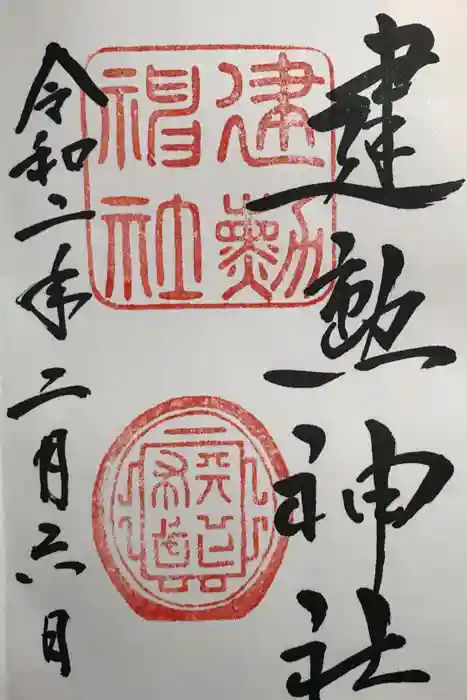 建勲神社
建勲
神社
令和二年二月六日